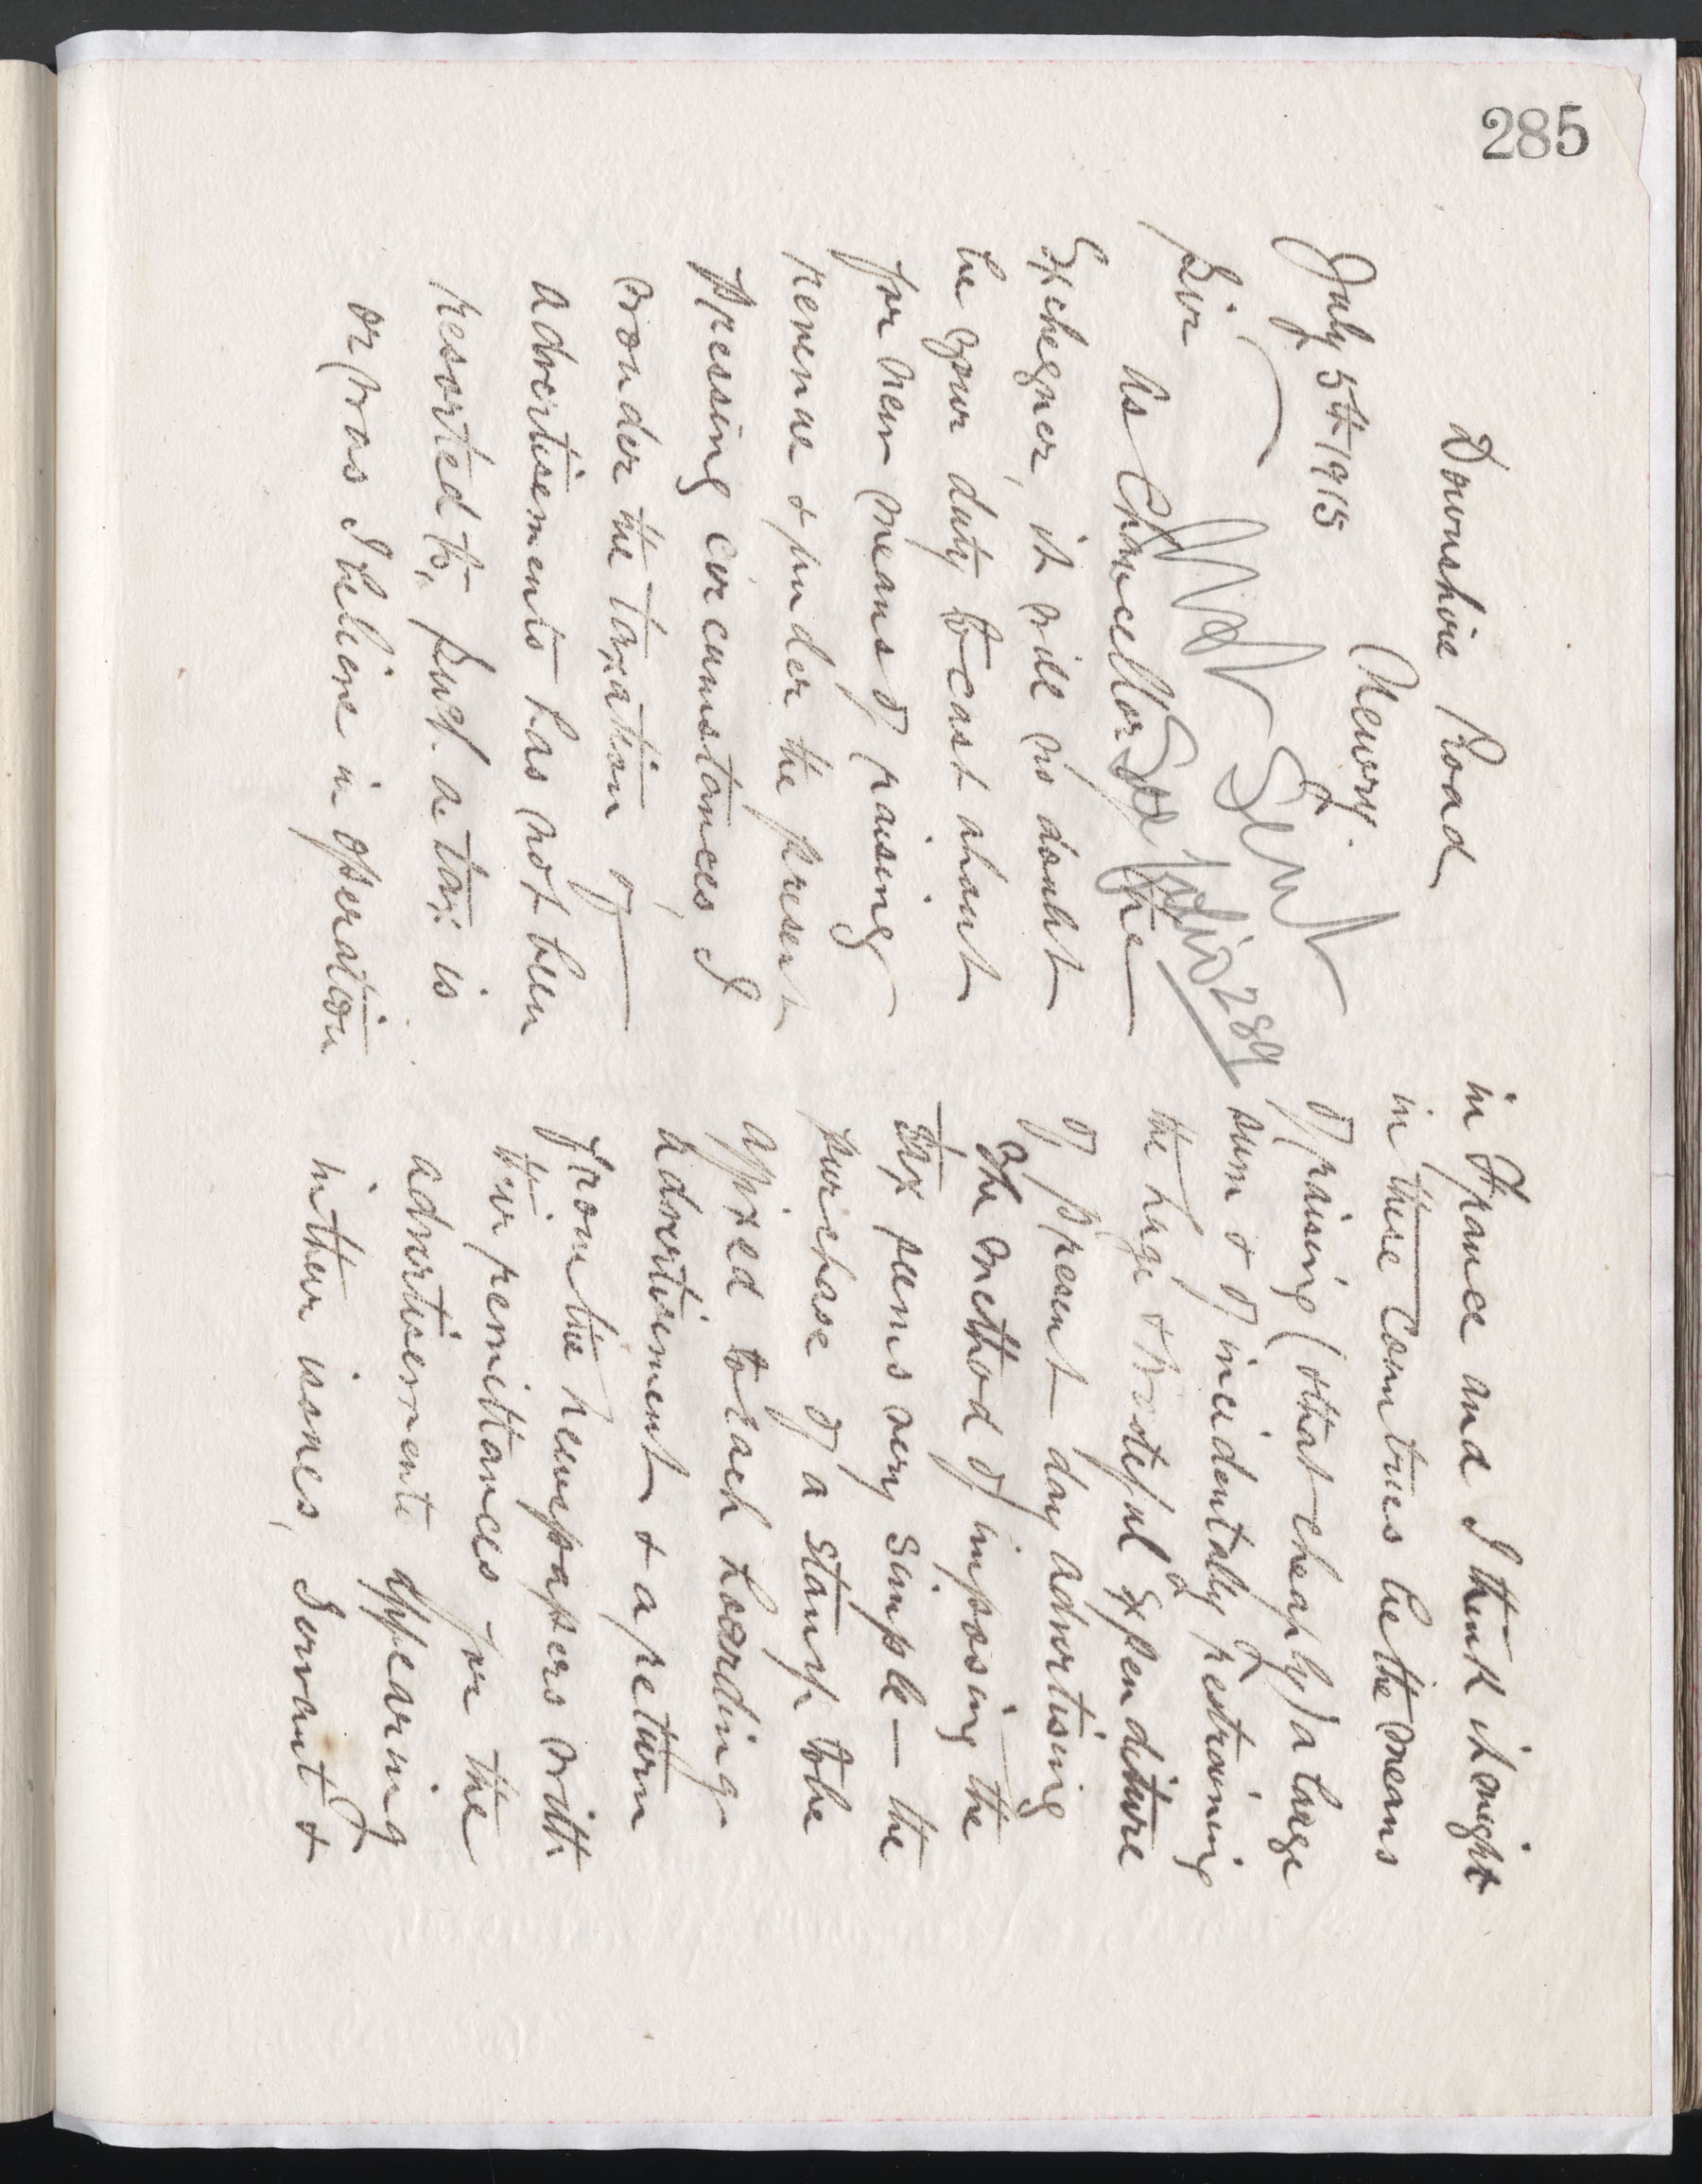 285
Downshire Road
Newry.
July 5th 1915
Not Sent
See folio 289
Sir,
As Chancellor of the
Exchequer, it will no doubt
be your duty to cast about
for new means of raising
revenue & under the present
pressing circumstances, I
wonder the taxation of
advertisements has not been
resorted to, such a tax is
or was I believe in operation
in France and I think it might
in these Countries be the means
of raising (& that cheaply) a large
sum & of incidentally restraining
the huge & wasteful expenditure
of present day advertising
The method of imposing the
tax seems very simple — the
purchase of a stamp to be
affixed to each hoarding
advertisement & a return
from the newspapers with
their remittances for the
advertisements appearing
in their issues, Servant &